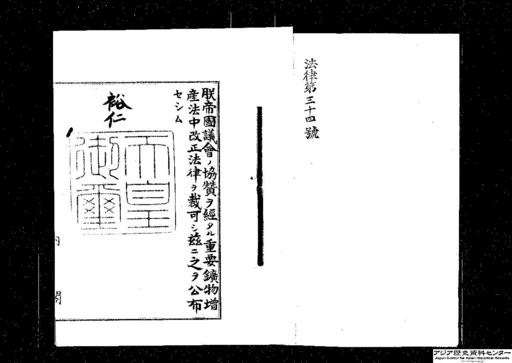 法律第三十四號
朕帝國議會ノ協贊ヲ經タル重要鑛物增
産法中改正法律ヲ裁可シ茲ニ之ヲ公布
セシム
裕仁
天皇
御璽
内
閣
アジア歴史資料センター
Japan Center for Asian Historical Records